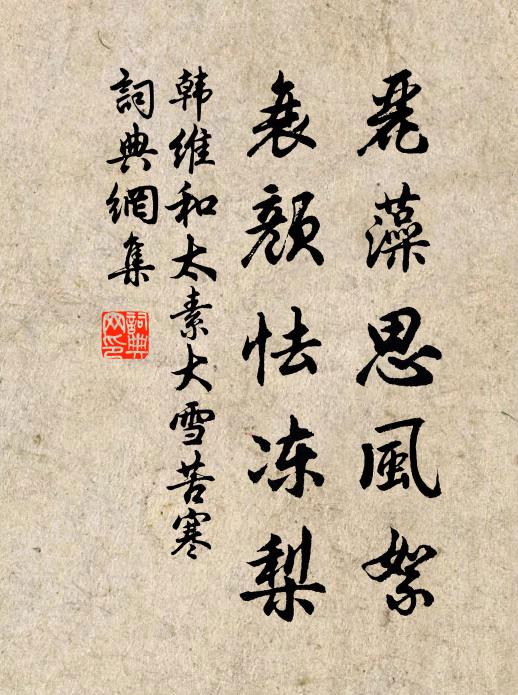 麗藻思風絮
衰顏怯冻梨
韩维和太素大雪苦寒
詞典網集
詞典
网印